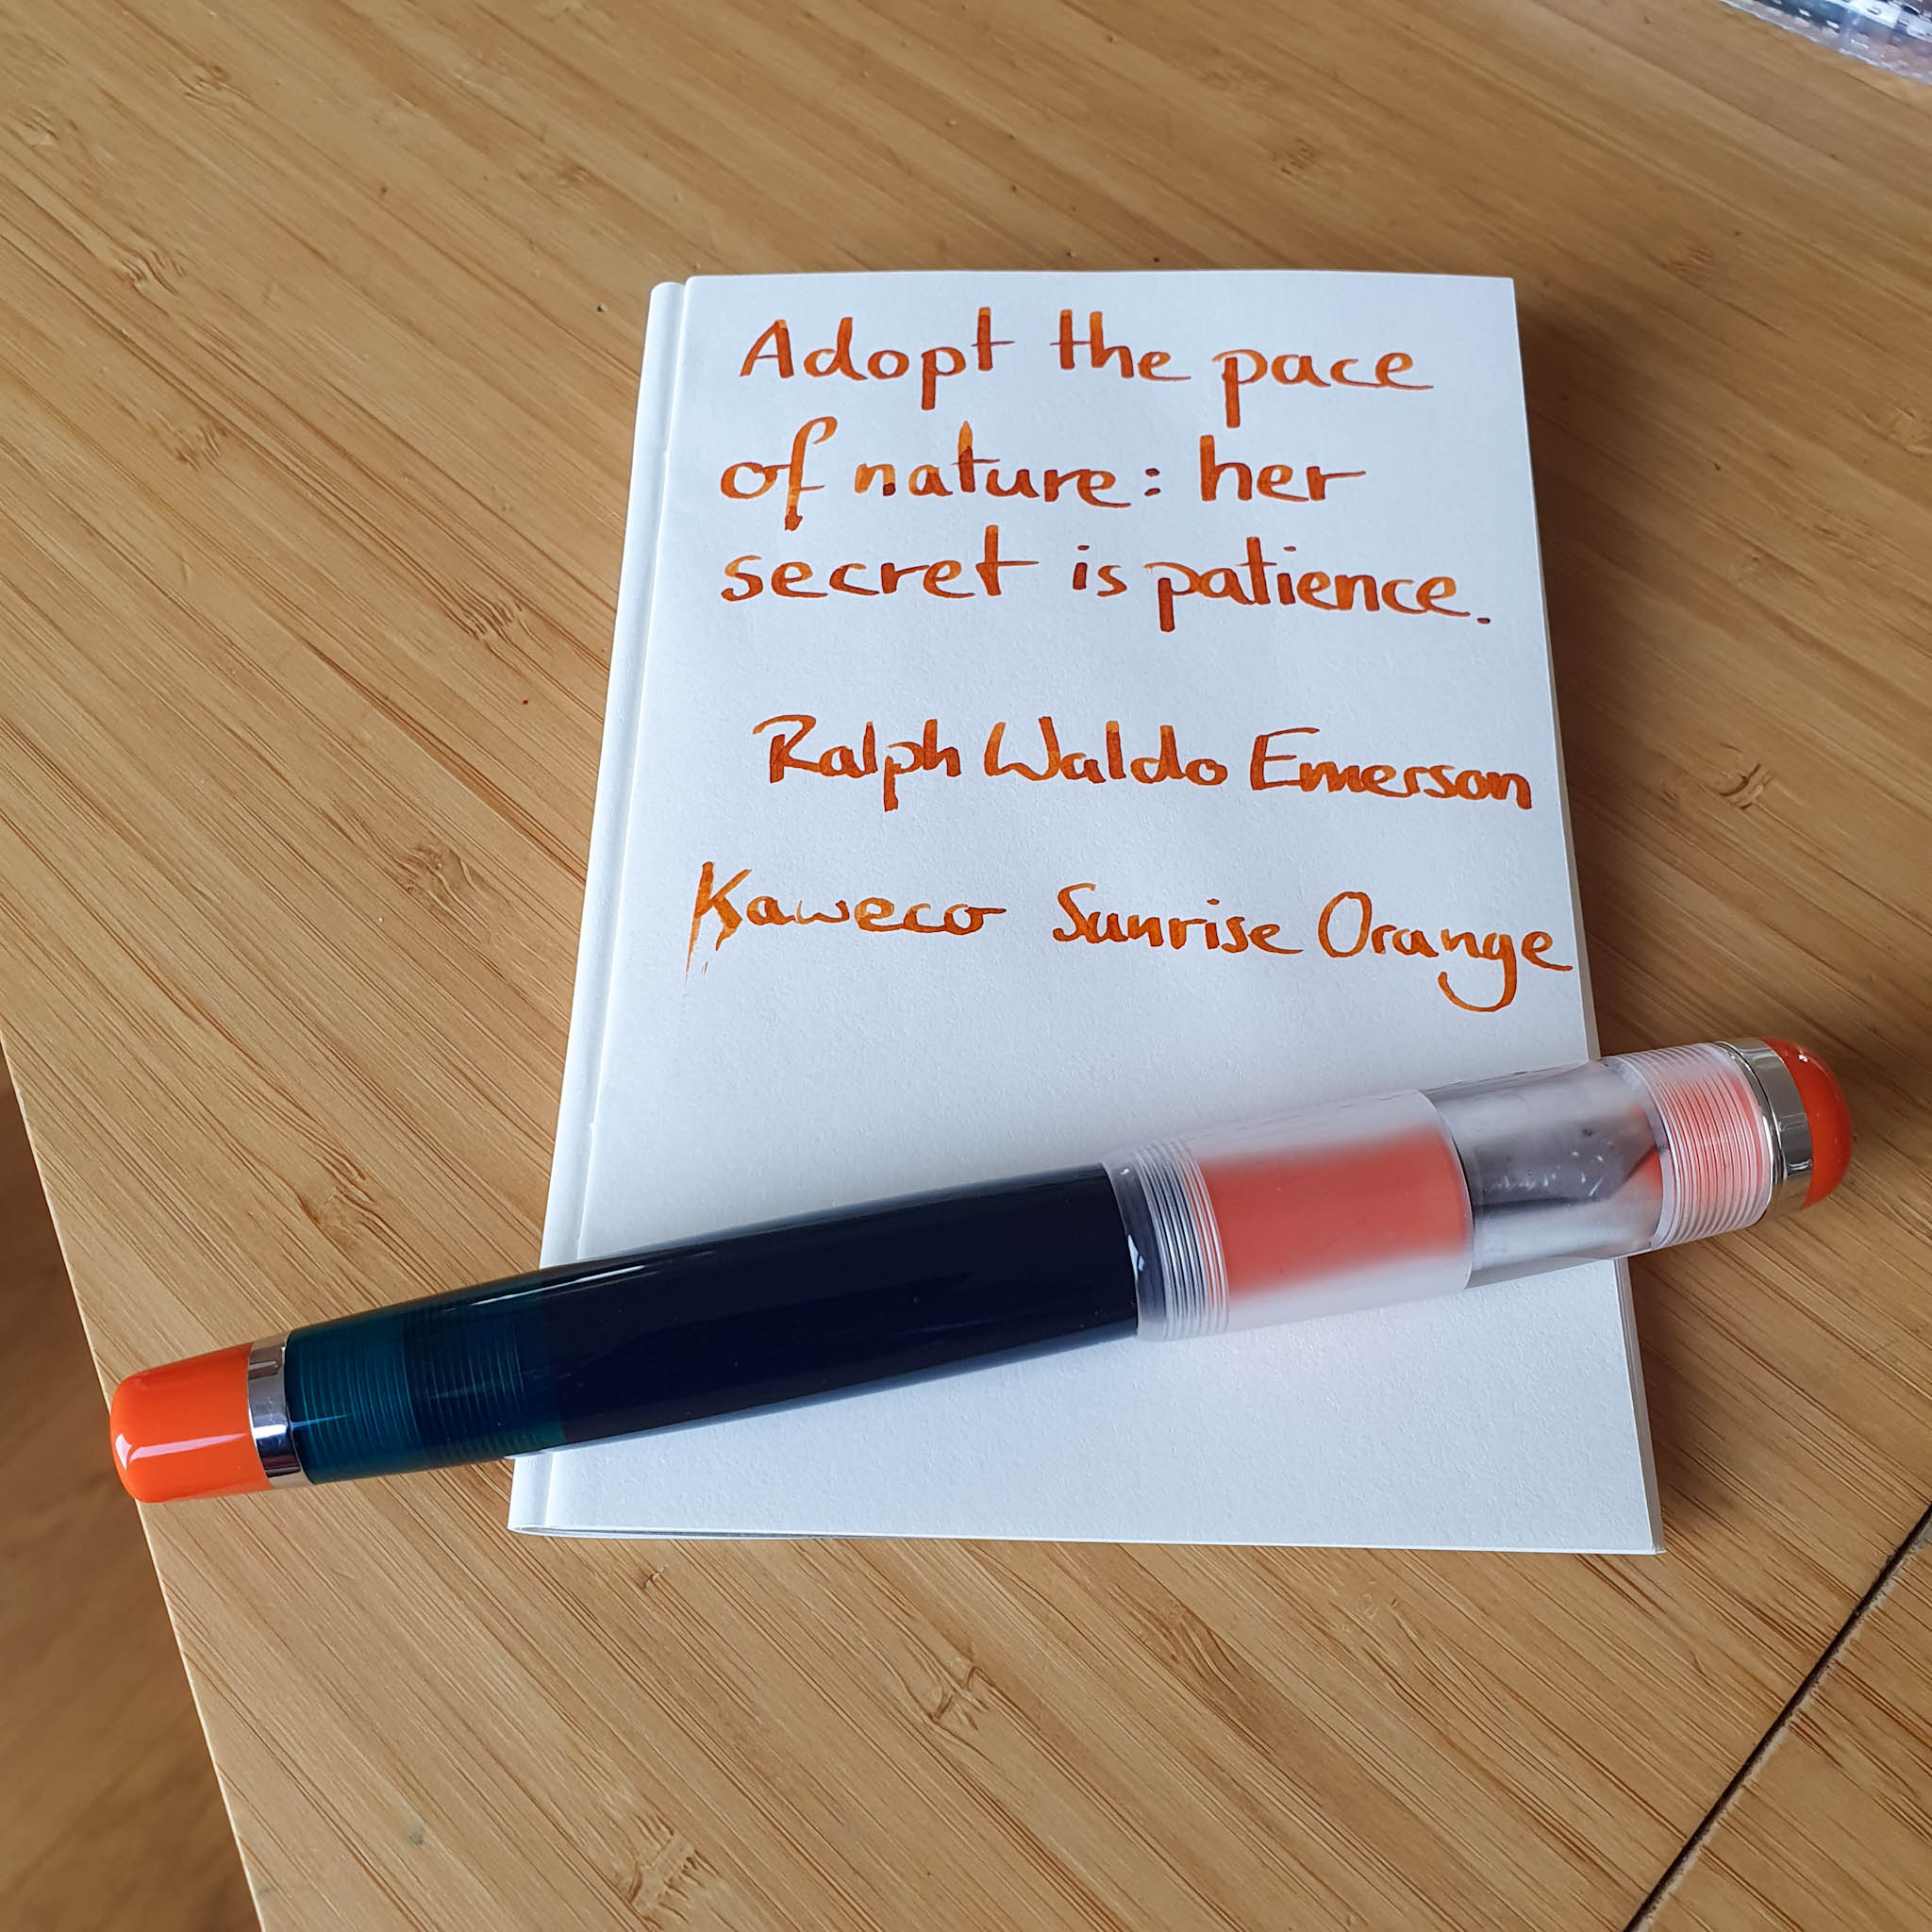 Adopt the pace
of nature: her
secret is patience.
Ralph Waldo Emerson
Kaweco Sunrise Orange